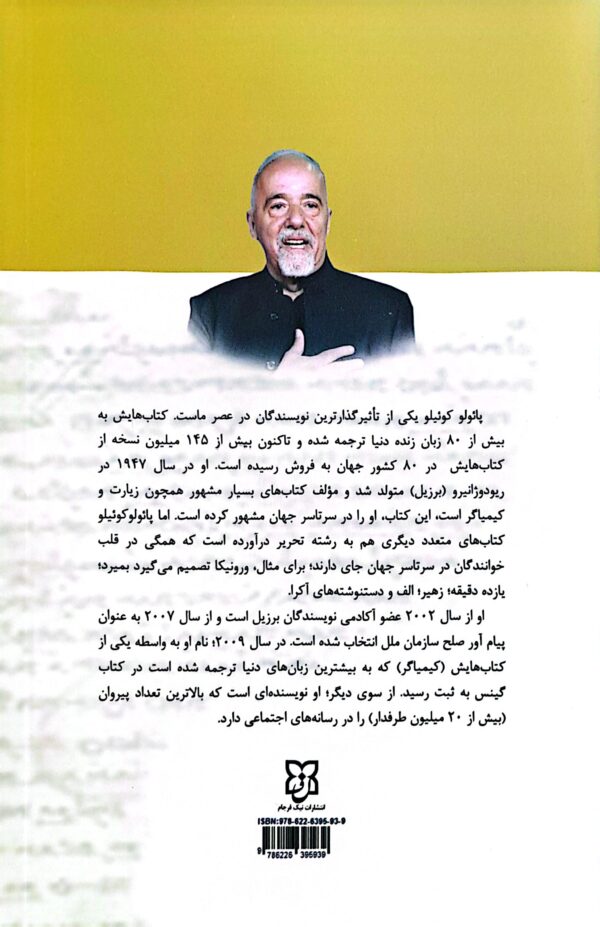 پائولو کوئیلو یکی از تأثیرگذارترین نویسندگان در عصر ماست. کتاب‌هایش به
بیش از ۸۰ زبان زنده دنیا ترجمه شده و تاکنون بیش از ۱۴۵ میلیون نسخه از
کتاب‌هایش در ۸۰ کشور جهان به فروش رسیده است. او در سال ۱۹۴۷ در
ریودوژانیرو (برزیل) متولد شد و مؤلف کتاب‌های بسیار مشهور همچون زیارت و
کیمیاگر است، این کتاب، او را در سرتاسر جهان مشهور کرده است. اما پائولوکوئیلو
کتاب‌های متعدد دیگری هم به رشته تحریر درآورده است که همگی در قلب
خوانندگان در سرتاسر جهان جای دارند؛ برای مثال، ورونیکا تصمیم می‌گیرد بمیرد؛
یازده دقیقه؛ زهیر؛ الف و دستنوشته‌های آکرا.
او از سال ۲۰۰۲ عضو آکادمی نویسندگان برزیل است و از سال ۲۰۰۷ به عنوان
پیام آور صلح سازمان ملل انتخاب شده است. در سال ۲۰۰۹؛ نام او به واسطه یکی از
کتاب‌هایش (کیمیاگر) که به بیشترین زبان‌های دنیا ترجمه شده است در کتاب
گینس به ثبت رسید. از سوی دیگر؛ او نویسنده‌ای است که بالاترین تعداد پیروان
(بیش از ۲۰ میلیون طرفدار) را در رسانه‌های اجتماعی دارد.
انتشارات نیک فرجام
ISBN:978-622-6395-93-9
9 786226 395939